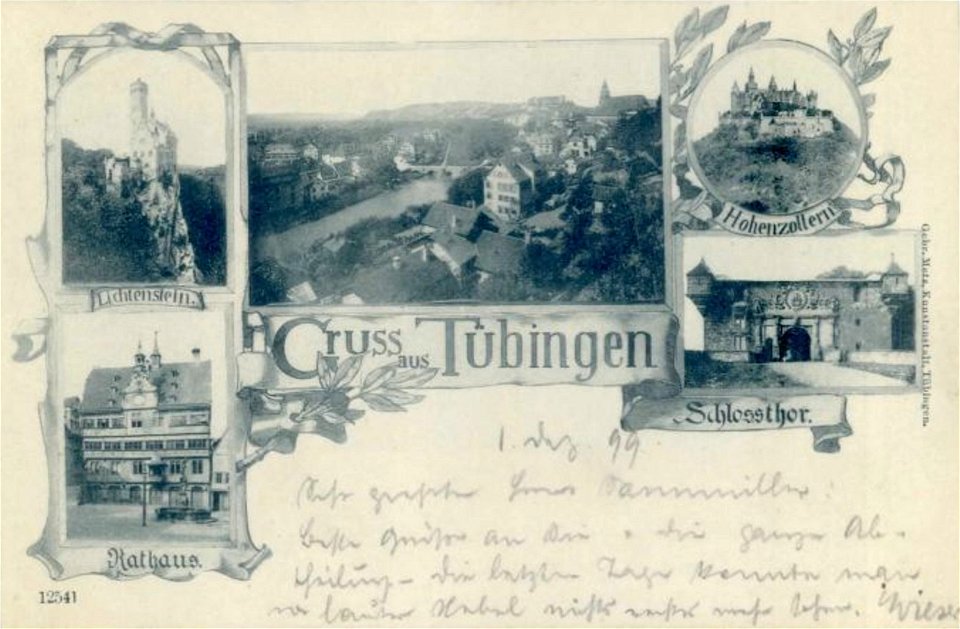 Lichtenstein.
Rathaus.
12541
Gruss aus Tübingen
Hohenzollern
Schlossthor.
Gebr. Metz, Kunstanstalt, Tübingen.
1. Dez. 99
Sehr geehrter Herr
Beste Grüße an Sie + die ganze Ab-
theilung – die letzten Tage konnte man
vor lauter Nebel nichts mehr sehen.